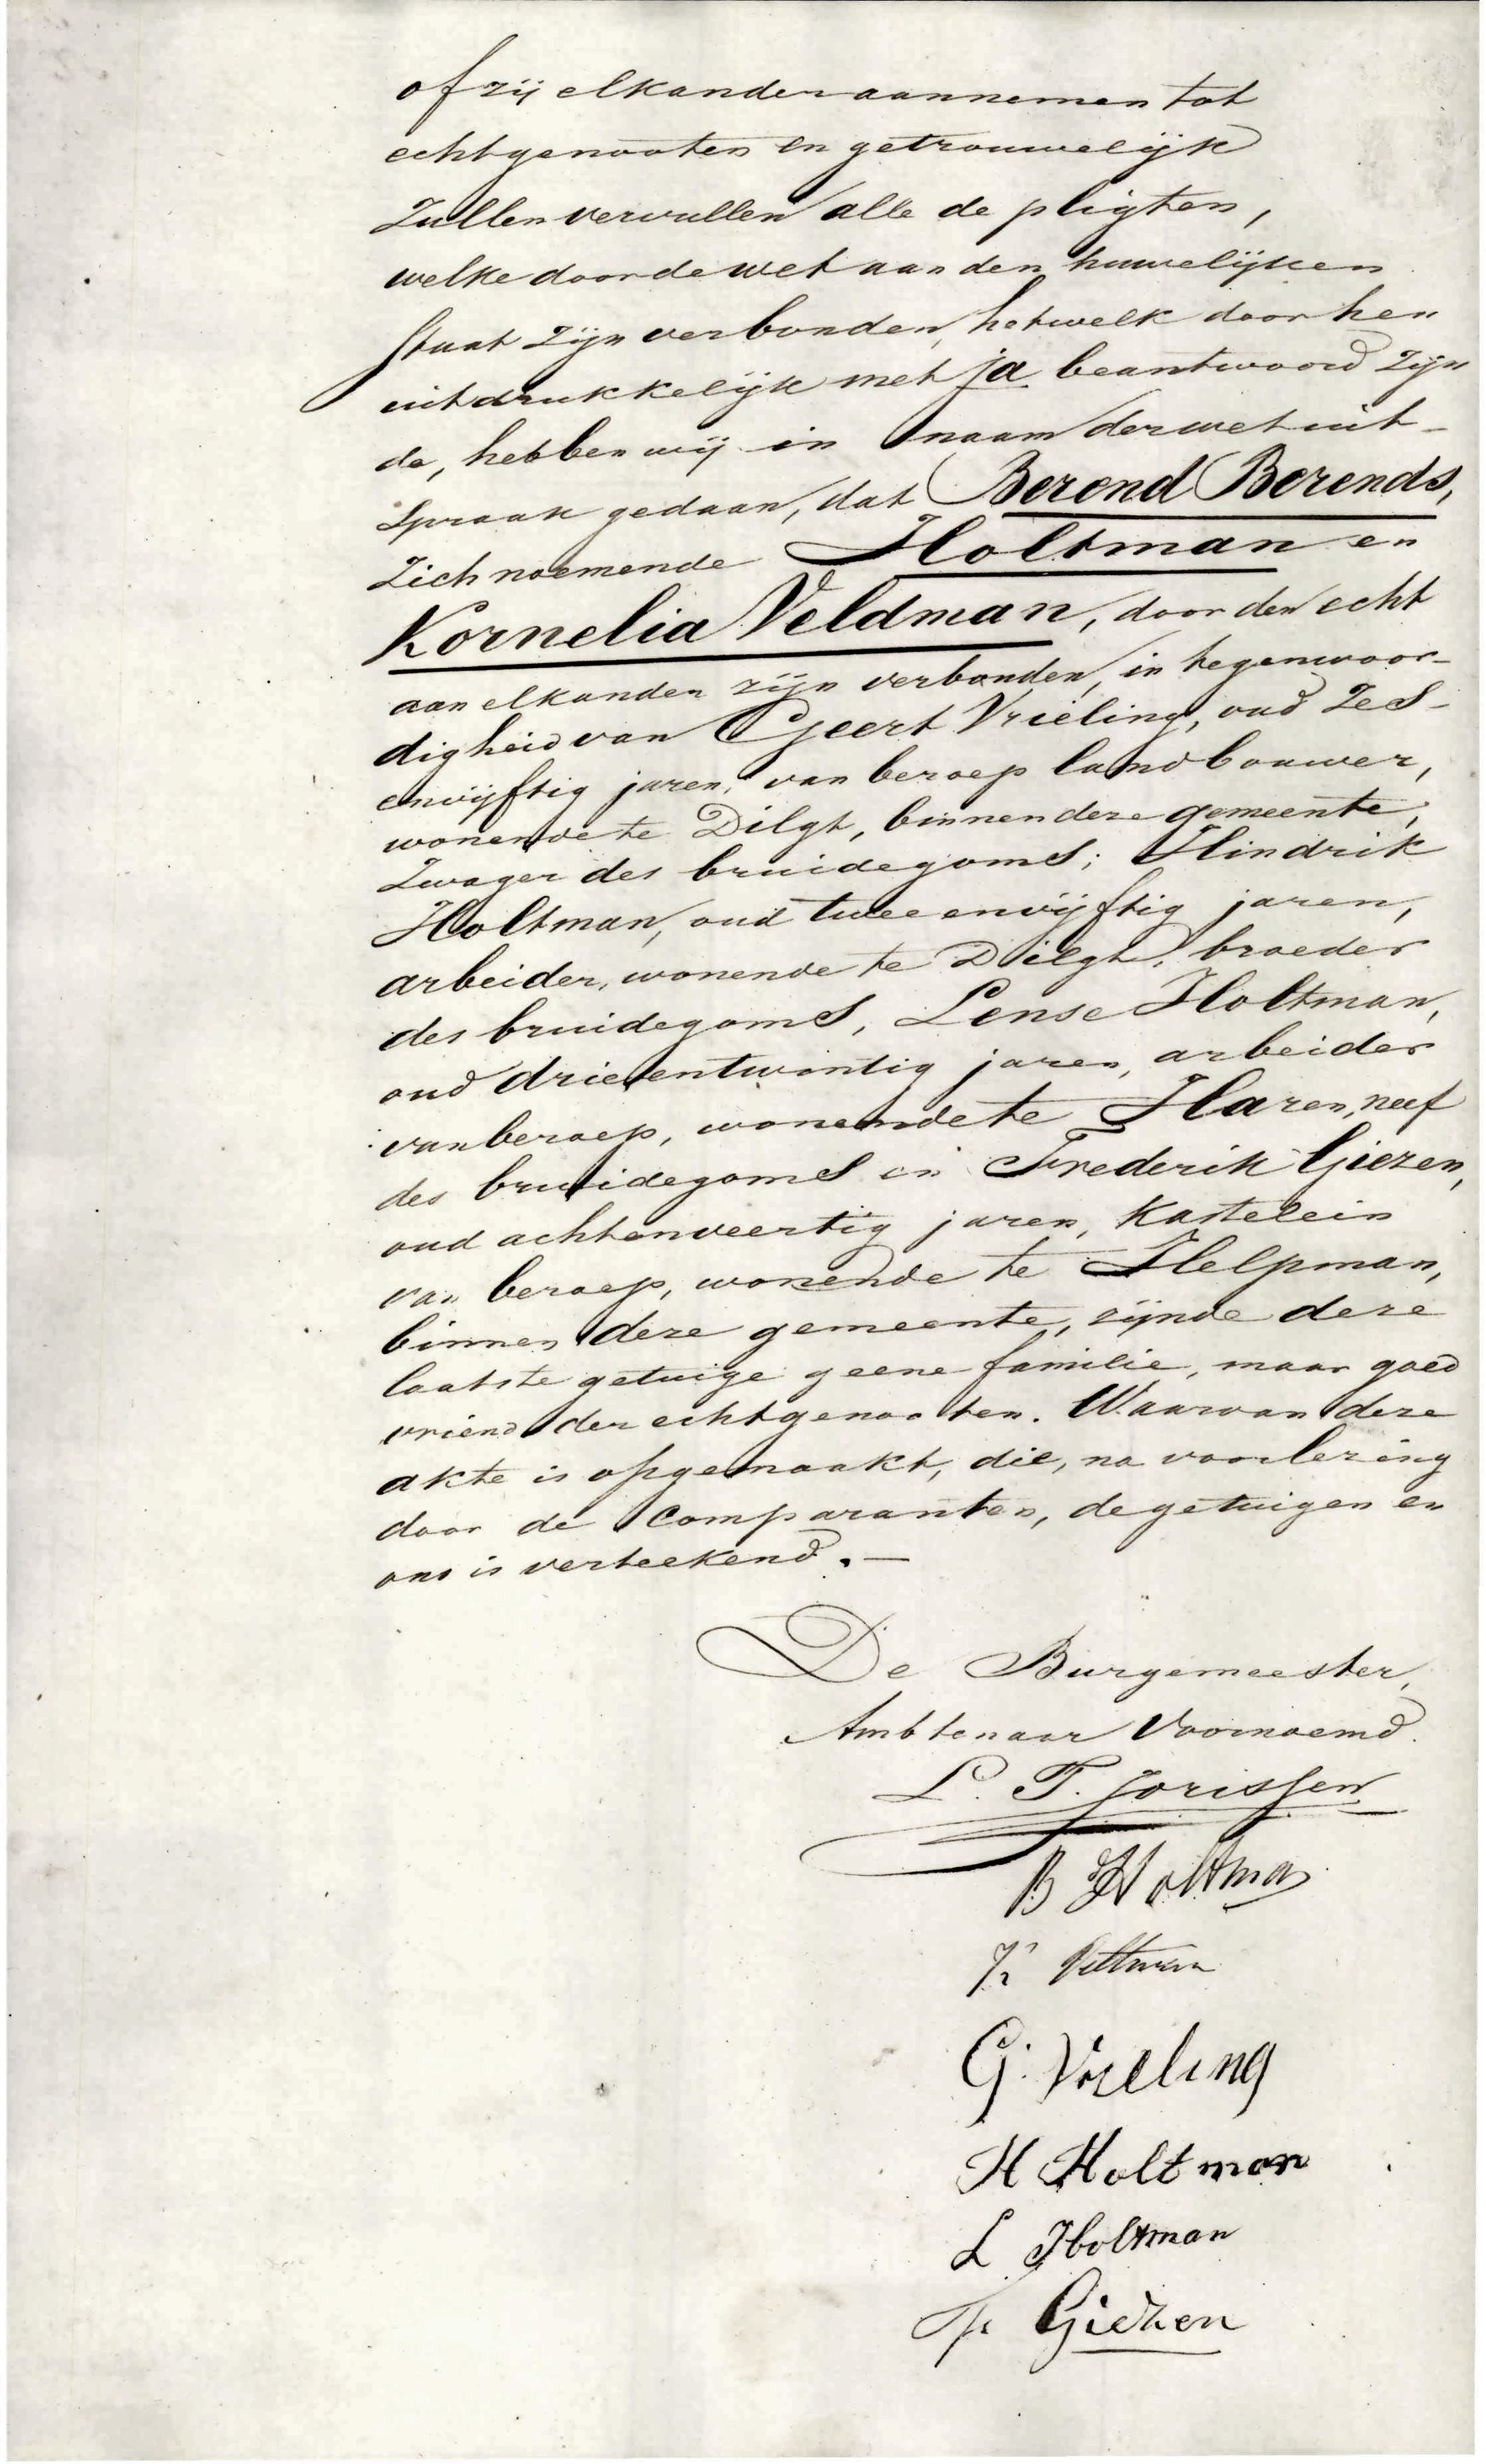 of zij elkander aannemen tot
echtgenooten en getrouwelijk
zullen vervullen alle de pligten,
welke door de wet aan den huwelijken
staat zijn verbonden, hetwelk door hen
uitdrukkelijk met ja beantwoord zijn
de, hebben wij in naam der wet uit-
spraak gedaan, dat Berend Berends,
zich noemende Holtman en
Kornelia Veldman, door den echt
aan elkander zijn verbonden, in tegenwoor-
digheid van Geert Vrieling, oud zes-
envijftig jaren, van beroep landbouwer,
wonende te Dilgt, binnen deze gemeente,
zwager des bruidegoms; Hindrik
Holtman, oud tweeenvijftig jaren,
arbeider, wonende te Dilgt, broeder
des bruidegoms, Lense Holtman,
oud drieentwintig jaren, arbeider
van beroep, wonende te Haren, neef
des bruidegoms en Frederik Giezen,
oud achtenveertig jaren, kastelein
van beroep, wonende te Helpman,
binnen deze gemeente, zijnde deze
laatste getuige geene familie, maar goed
vriend der echtgenooten. Waarvan deze
akte is opgemaakt, die, na voorlezing
door de comparanten, de getuigen en
ons is verteekend. —
De Burgemeester,
Ambtenaar voornoemd.
L. T. Jorissen
B Holtman
K Veltman
G. Vrieling
H Holtman
L Holtman
Fr Giezen